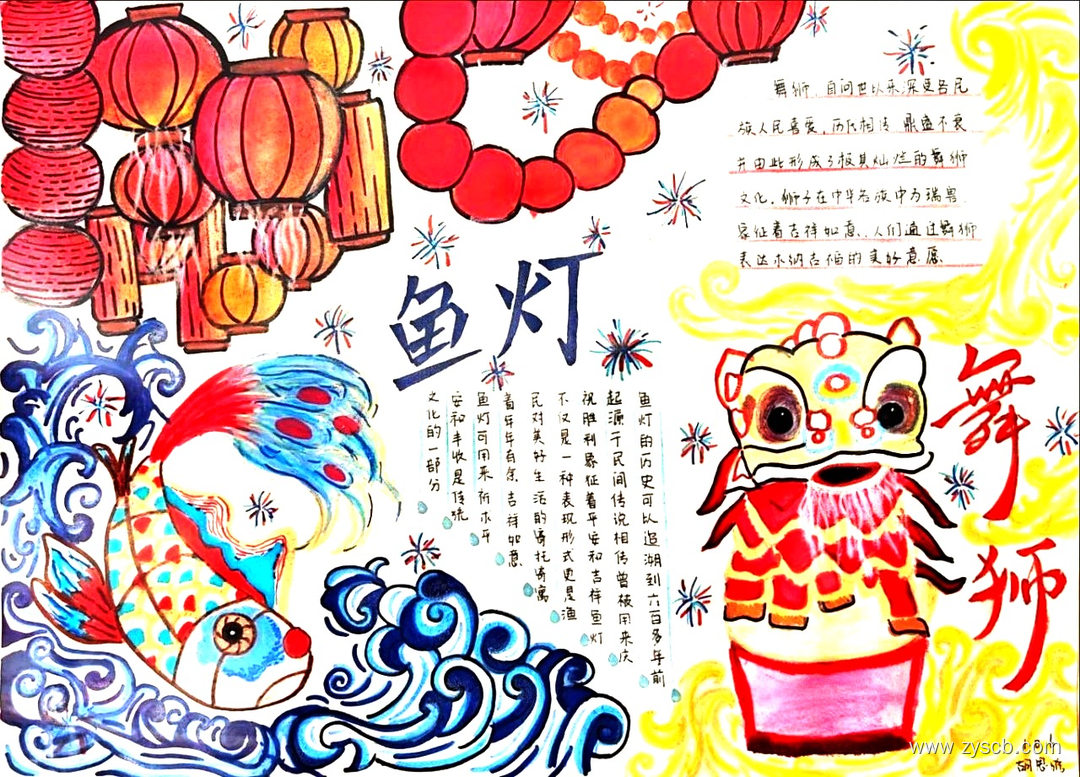 鱼灯
舞狮,自问世以来深受各民
族人民喜爱,历代相传,鼎盛不衰
并由此形成了极具灿烂的舞狮
文化。狮子在中华名族中为瑞兽
象征着吉祥如意、人们通过舞狮
表达求纳吉福的美好意愿。
鱼灯的历史可以追溯到六百多年前
起源于民间传说相传曾被用来庆
祝胜利象征着平安和吉祥鱼灯
不仅是一种表现形式更是渔
民对美好生活的寄托寄寓
着年年有余吉祥如意
鱼灯可用来祈求平
安和丰收是传统
文化的一部分
舞狮
www.zyscb.com